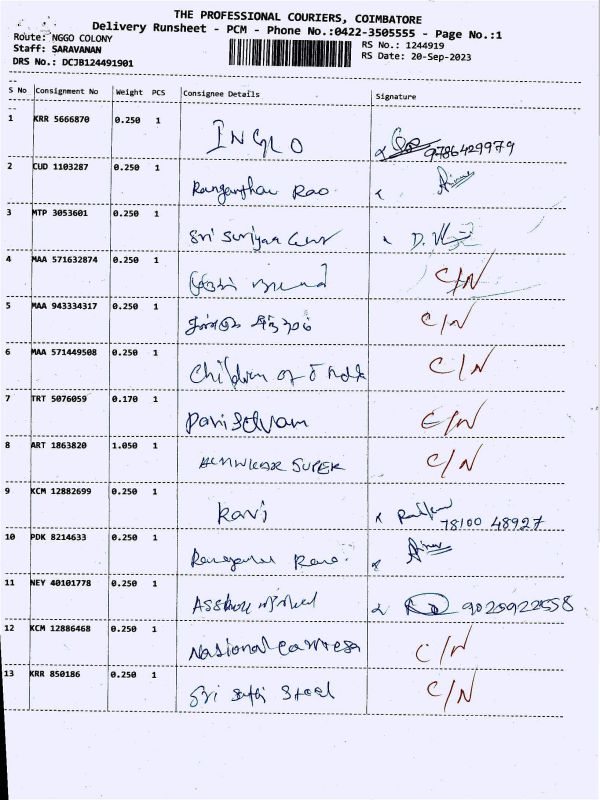 THE PROFESSIONAL COURIERS, COIMBATORE
Delivery Runsheet - PCM - Phone No.:0422-3505555 - Page No.:1
Route: NGGO COLONY
Staff: SARAVANAN
DRS No.: DCJB124491901
RS No.: 1244919
RS Date: 20-Sep-2023
S No Consignment No Weight PCS Consignee Details Signature
1 KRR 5666870 0.250 1 INGLO 9786429979
2 CUD 1103287 0.250 1 Ranganthan Rao
3 MTP 3053601 0.250 1 Sri Suriyaa
4 MAA 571632874 0.250 1 C/N
5 MAA 943334317 0.250 1 C/N
6 MAA 571449508 0.250 1 Children of C/N
7 TRT 5076059 0.170 1 Pariselvam C/N
8 ART 1863820 1.050 1 SUPER C/N
9 KCM 12882699 0.250 1 Ravi 78100 48927
10 PDK 8214633 0.250 1
11 NEY 40101778 0.250 1 9020922558
12 KCM 12886468 0.250 1 National C/N
13 KRR 850186 0.250 1 Sri Steel C/N